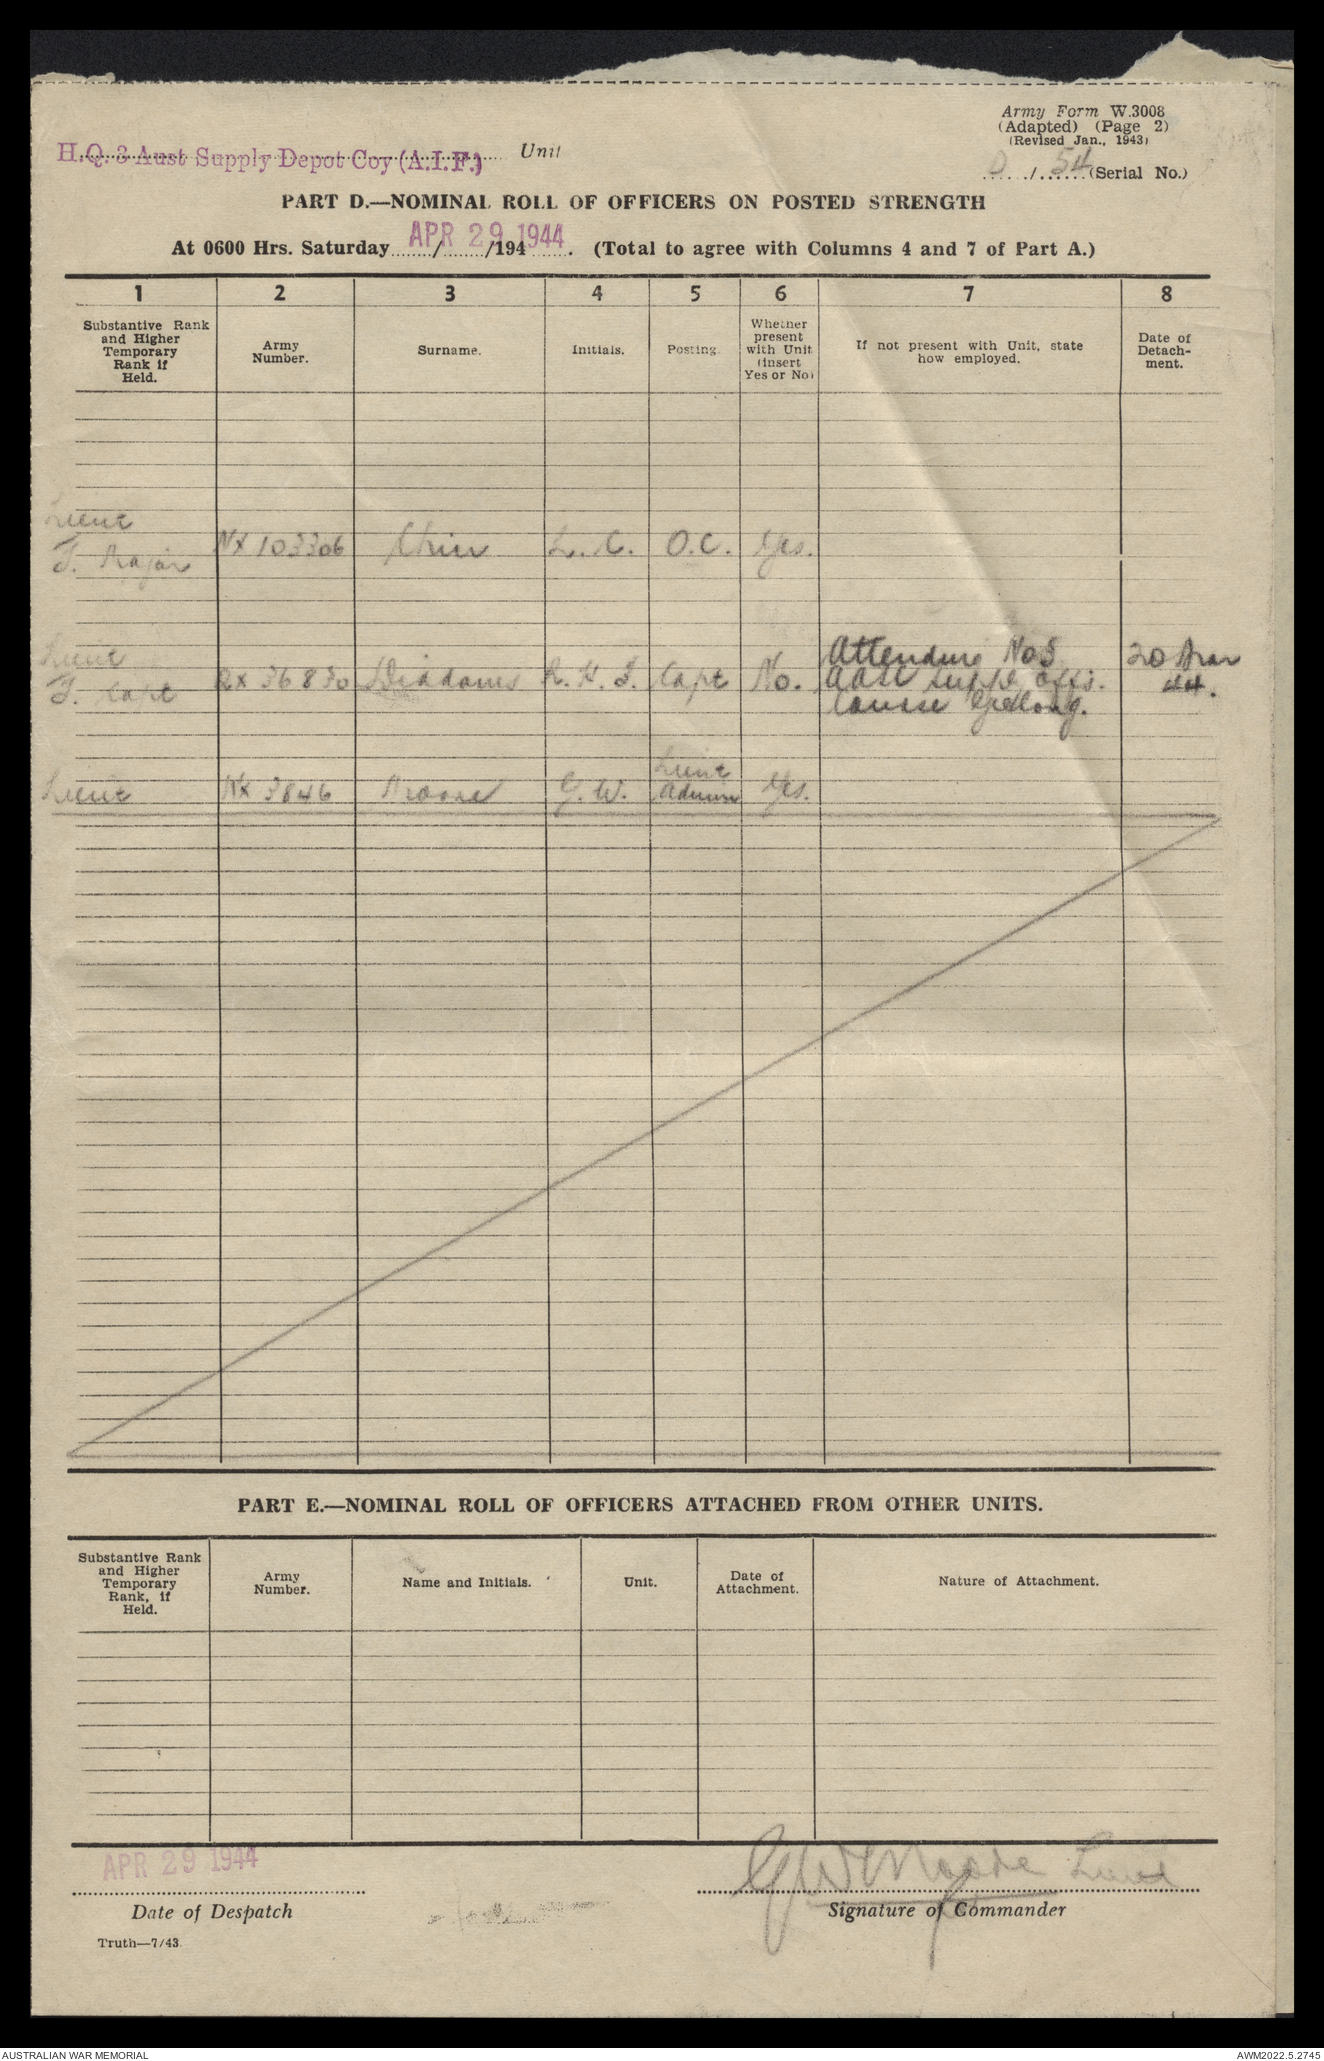 Army Form W.3008
(Adapted) (Page 2)
(Revised Jan., 1943)
H.Q. 3 Aust Supply Depot Coy (A.I.F.) Unit
D/54 (Serial No.)
PART D.—NOMINAL ROLL OF OFFICERS ON POSTED STRENGTH
At 0600 Hrs. Saturday ....../....../194...... APR 29 1944. (Total to agree with Columns 4 and 7 of Part A.)
1 2 3 4 5 6 7 8
Substantive Rank
and Higher
Temporary
Rank if
Held.
Army
Number.
Surname.
Initials.
Posting.
Whether
present
with Unit
(insert
Yes or No)
If not present with Unit, state
how employed.
Date of
Detach-
ment.
Lieut
T. Major NX 103306 L. C. O.C. Yes.
Lieut
T. Capt 36830 Diddams R. H. J. Capt No.
Attending No 3
AASC Supply Offs.
Course Geelong.
20 Mar
44.
Lieut NX 3846 Moore G. W.
Lieut
Admin
Yes.
PART E.—NOMINAL ROLL OF OFFICERS ATTACHED FROM OTHER UNITS.
Substantive Rank
and Higher
Temporary
Rank, if
Held.
Army
Number.
Name and Initials.
Unit.
Date of
Attachment.
Nature of Attachment.
APR 29 1944
GW Moore Lieut
Date of Despatch
Signature of Commander
Truth—7/43.
AUSTRALIAN WAR MEMORIAL
AWM2022.5.2745